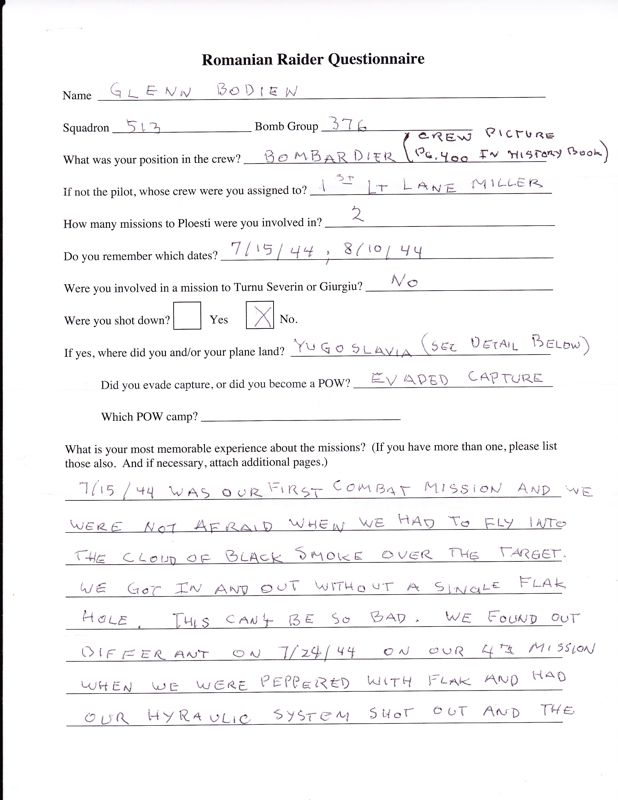 Romanian Raider Questionnaire
Name GLENN BODIEN
Squadron 513 Bomb Group 376
What was your position in the crew? BOMBARDIER (CREW PICTURE PG. 400 IN HISTORY BOOK)
If not the pilot, whose crew were you assigned to? 1ST LT LANE MILLER
How many missions to Ploesti were you involved in? 2
Do you remember which dates? 7/15/44, 8/10/44
Were you involved in a mission to Turnu Severin or Giurgiu? NO
Were you shot down? Yes X No.
If yes, where did you and/or your plane land? YUGOSLAVIA (SEE DETAIL BELOW)
Did you evade capture, or did you become a POW? EVADED CAPTURE
Which POW camp?
What is your most memorable experience about the missions? (If you have more than one, please list
those also. And if necessary, attach additional pages.)
7/15/44 WAS OUR FIRST COMBAT MISSION AND WE
WERE NOT AFRAID WHEN WE HAD TO FLY INTO
THE CLOUD OF BLACK SMOKE OVER THE TARGET.
WE GOT IN AND OUT WITHOUT A SINGLE FLAK
HOLE. THIS CAN'T BE SO BAD. WE FOUND OUT
DIFFERANT ON 7/24/44 ON OUR 4TH MISSION
WHEN WE WERE PEPPERED WITH FLAK AND HAD
OUR HYRAULIC SYSTEM SHOT OUT AND THE